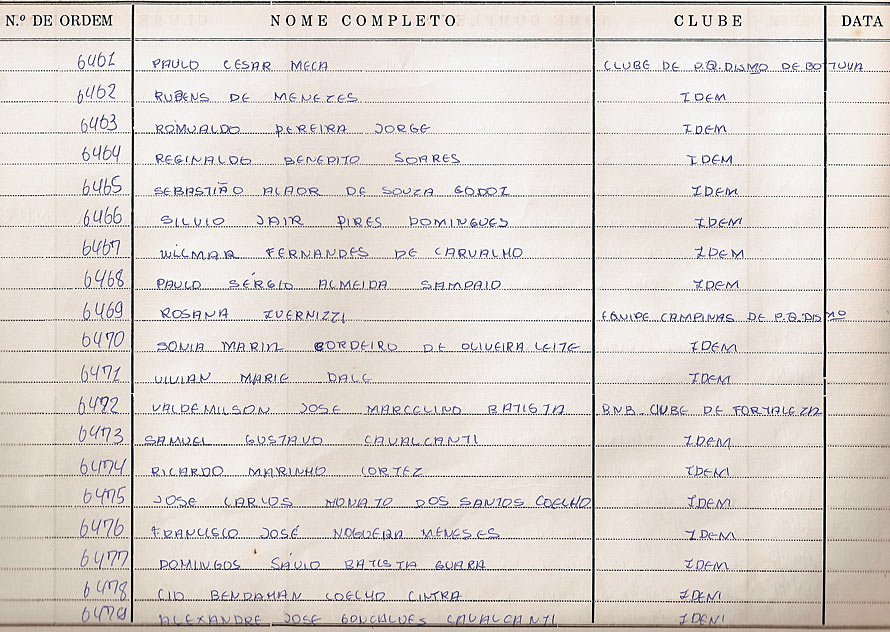 N.º DE ORDEM NOME COMPLETO CLUBE DATA
6461 PAULO CESAR MECA CLUBE DE P.Q.DISMO DE BOITUVA
6462 RUBENS DE MENEZES IDEM
6463 ROMUALDO PEREIRA JORGE IDEM
6464 REGINALDO BENEDITO SOARES IDEM
6465 SEBASTIÃO ALAOR DE SOUZA GODOI IDEM
6466 SILVIO JAIR PIRES DOMINGUES IDEM
6467 WILMAR FERNANDES DE CARVALHO IDEM
6468 PAULO SÉRGIO ALMEIDA SAMPAIO IDEM
6469 ROSANA ZUERNIZZI EQUIPE CAMPINAS DE P.Q.DISMO
6470 SONIA MARIA CORDEIRO DE OLIVEIRA LEITE IDEM
6471 VIVIAN MARIE DALE IDEM
6472 VALDEMILSON JOSE MARCELINO BATISTA B.N.B. CLUBE DE FORTALEZA
6473 SAMUEL GUSTAVO CAVALCANTI IDEM
6474 RICARDO MARINHO CORTEZ IDEM
6475 JOSE CARLOS MONATO DOS SANTOS COELHO IDEM
6476 FRANCISCO JOSÉ NOGUEIRA MENESES IDEM
6477 DOMINGOS SÁVIO BATISTA GUARA IDEM
6478 CID BENDAMAN COELHO CINTRA IDEM
6479 ALEXANDRE JOSE GONCALVES CAVALCANTI IDEM